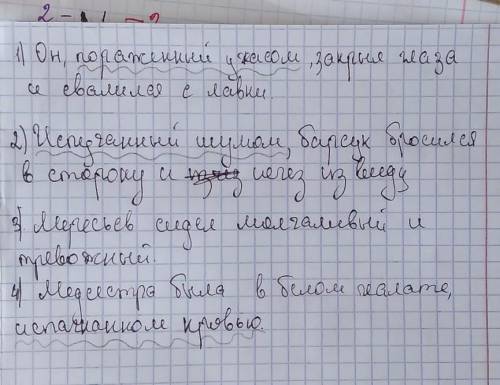 2-
1) Он, пораженный ужасом, закрыл глаза
и свалился с лавки.
2) Испуганный шумом, барсук бросился
в сторону и исчез из виду
3) Мересьев сидел молчаливый и
тревожный.
4) Медсестра была в белом халате,
испачканном кровью.